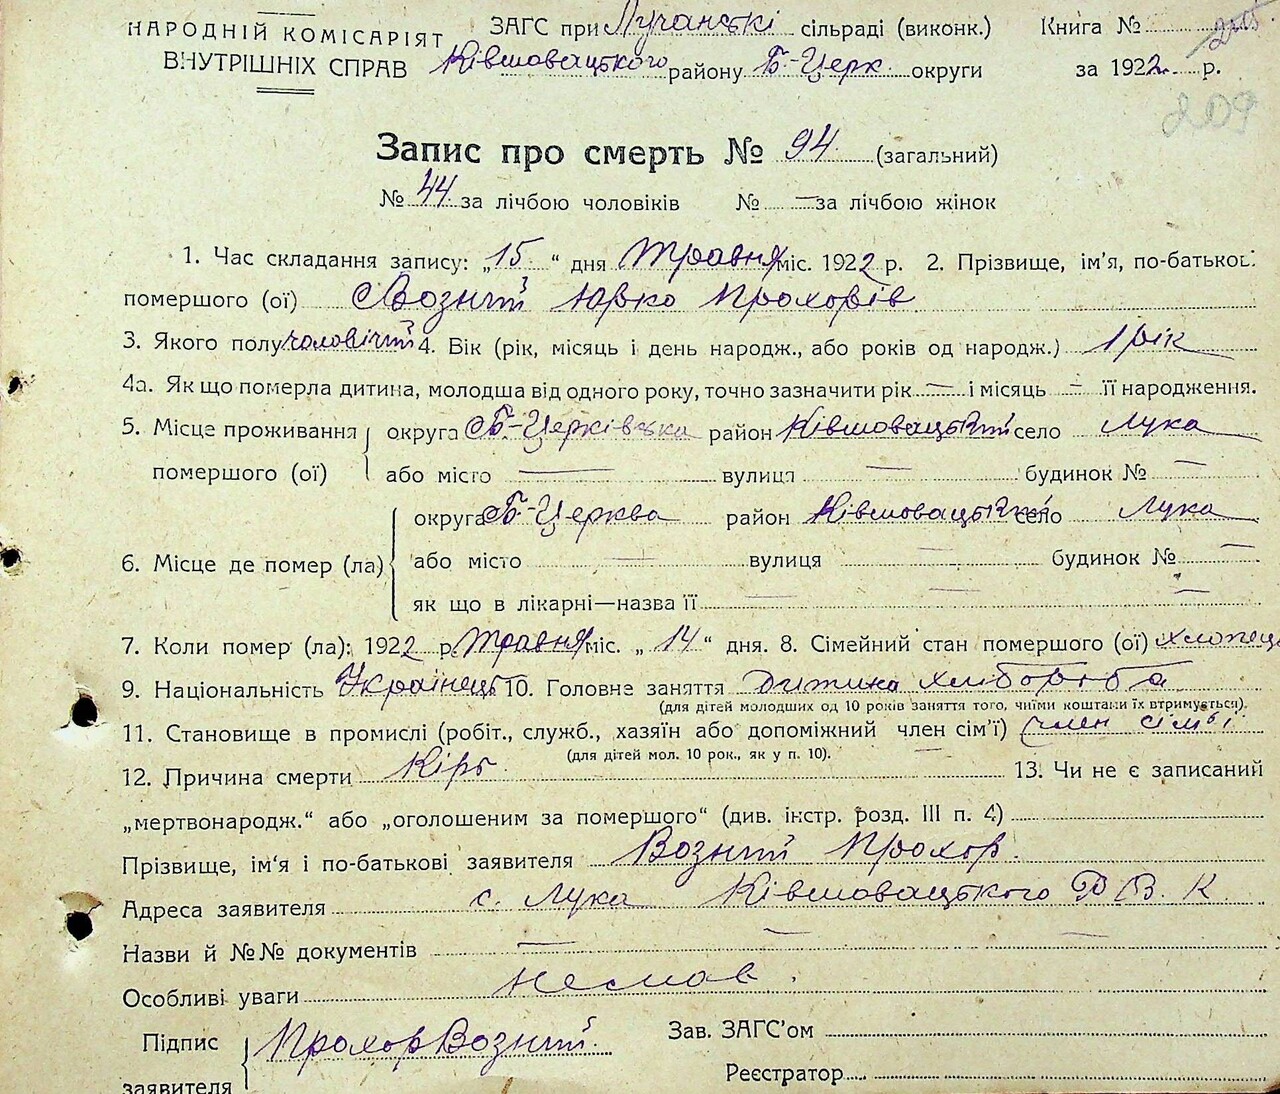 НАРОДНІЙ КОМІСАРІЯТ ЗАГС при Лучанські сільраді (виконк.) Книга №
ВНУТРІШНІХ СПРАВ Ківшовацького району Б-Церк. округи за 1922 р.
209
Запис про смерть № 94 (загальний)
№ 44 за лічбою чоловіків № — за лічбою жінок
1. Час складання запису: „15“ дня Травня міс. 1922 р. 2. Прізвище, ім'я, по-батькові
помершого (ої) Возний Юрко Прохорів
3. Якого полу чоловічий 4. Вік (рік, місяць і день народж., або років од народж.) 1 рік
4а. Як що померла дитина, молодша від одного року, точно зазначити рік — і місяць — її народження.
5. Місце проживання округа Б-Церківська район Ківшовацький село Лука
помершого (ої) або місто — вулиця — будинок № —
округа Б-Церква район Ківшовацький село Лука
6. Місце де помер (ла) або місто — вулиця — будинок № —
як що в лікарні—назва її — — —
7. Коли помер (ла): 1922 р. Травня міс. „14“ дня. 8. Сімейний стан помершого (ої) хлопець
9. Національність Українець 10. Головне заняття Дитина хлібороба
(для дітей молодших од 10 років заняття того, чиїми коштами їх втримується).
11. Становище в промислі (робіт., служб., хазяїн або допоміжний член сім'ї) член сімьї
(для дітей мол. 10 рок., як у п. 10).
12. Причина смерти Кірь 13. Чи не є записаний
„мертвонародж.“ або „оголошеним за помершого“ (див. інстр. розд. III п. 4)
Прізвище, ім'я і по-батькові заявителя Возний Прохор.
Адреса заявителя с. Лука Ківшовацького Р В. К
Назви й №№ документів — — —
Особливі уваги немав.
Підпис Прохор Возний Зав. ЗАГС'ом
заявителя Реєстратор